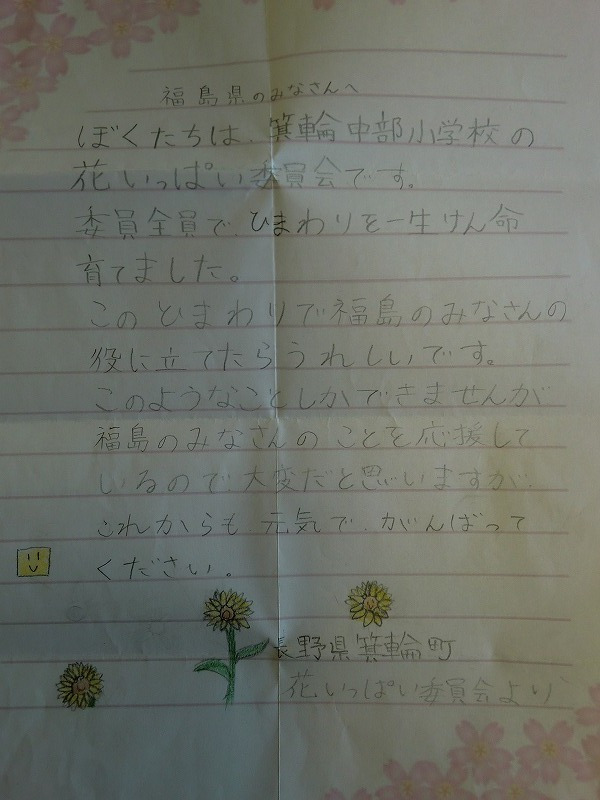 福島県のみなさんへ
ぼくたちは、箕輪中部小学校の
花いっぱい委員会です。
委員全員で、ひまわりを一生けん命
育てました。
このひまわりで福島のみなさんの
役に立てたらうれしいです。
このようなことしかできませんが
福島のみなさんのことを応援して
いるので、大変だと思いますが、
これからも元気で、がんばって
ください。
長野県箕輪町
花いっぱい委員会より